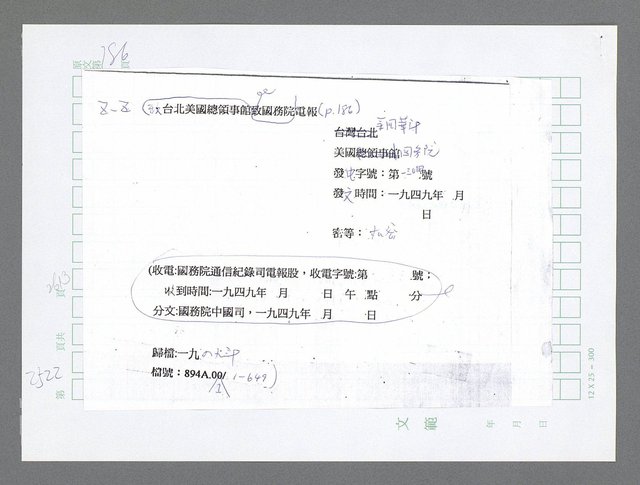 原文第 186 頁
台北美國總領事館致國務院電報(p.186)
台灣台北
美國總領事館
發電字號：第 號
發文時間：一九四九年 月
日
密等：
(收電:國務院通信紀錄司電報股，收電字號:第 號；
收到時間:一九四九年 月 日 午 點 分
分文:國務院中國司，一九四九年 月 日
歸檔:一九
檔號：894A.00/1-649)
頁
頁共
2522
第
12 X 25 = 300
文 範
年 月 日